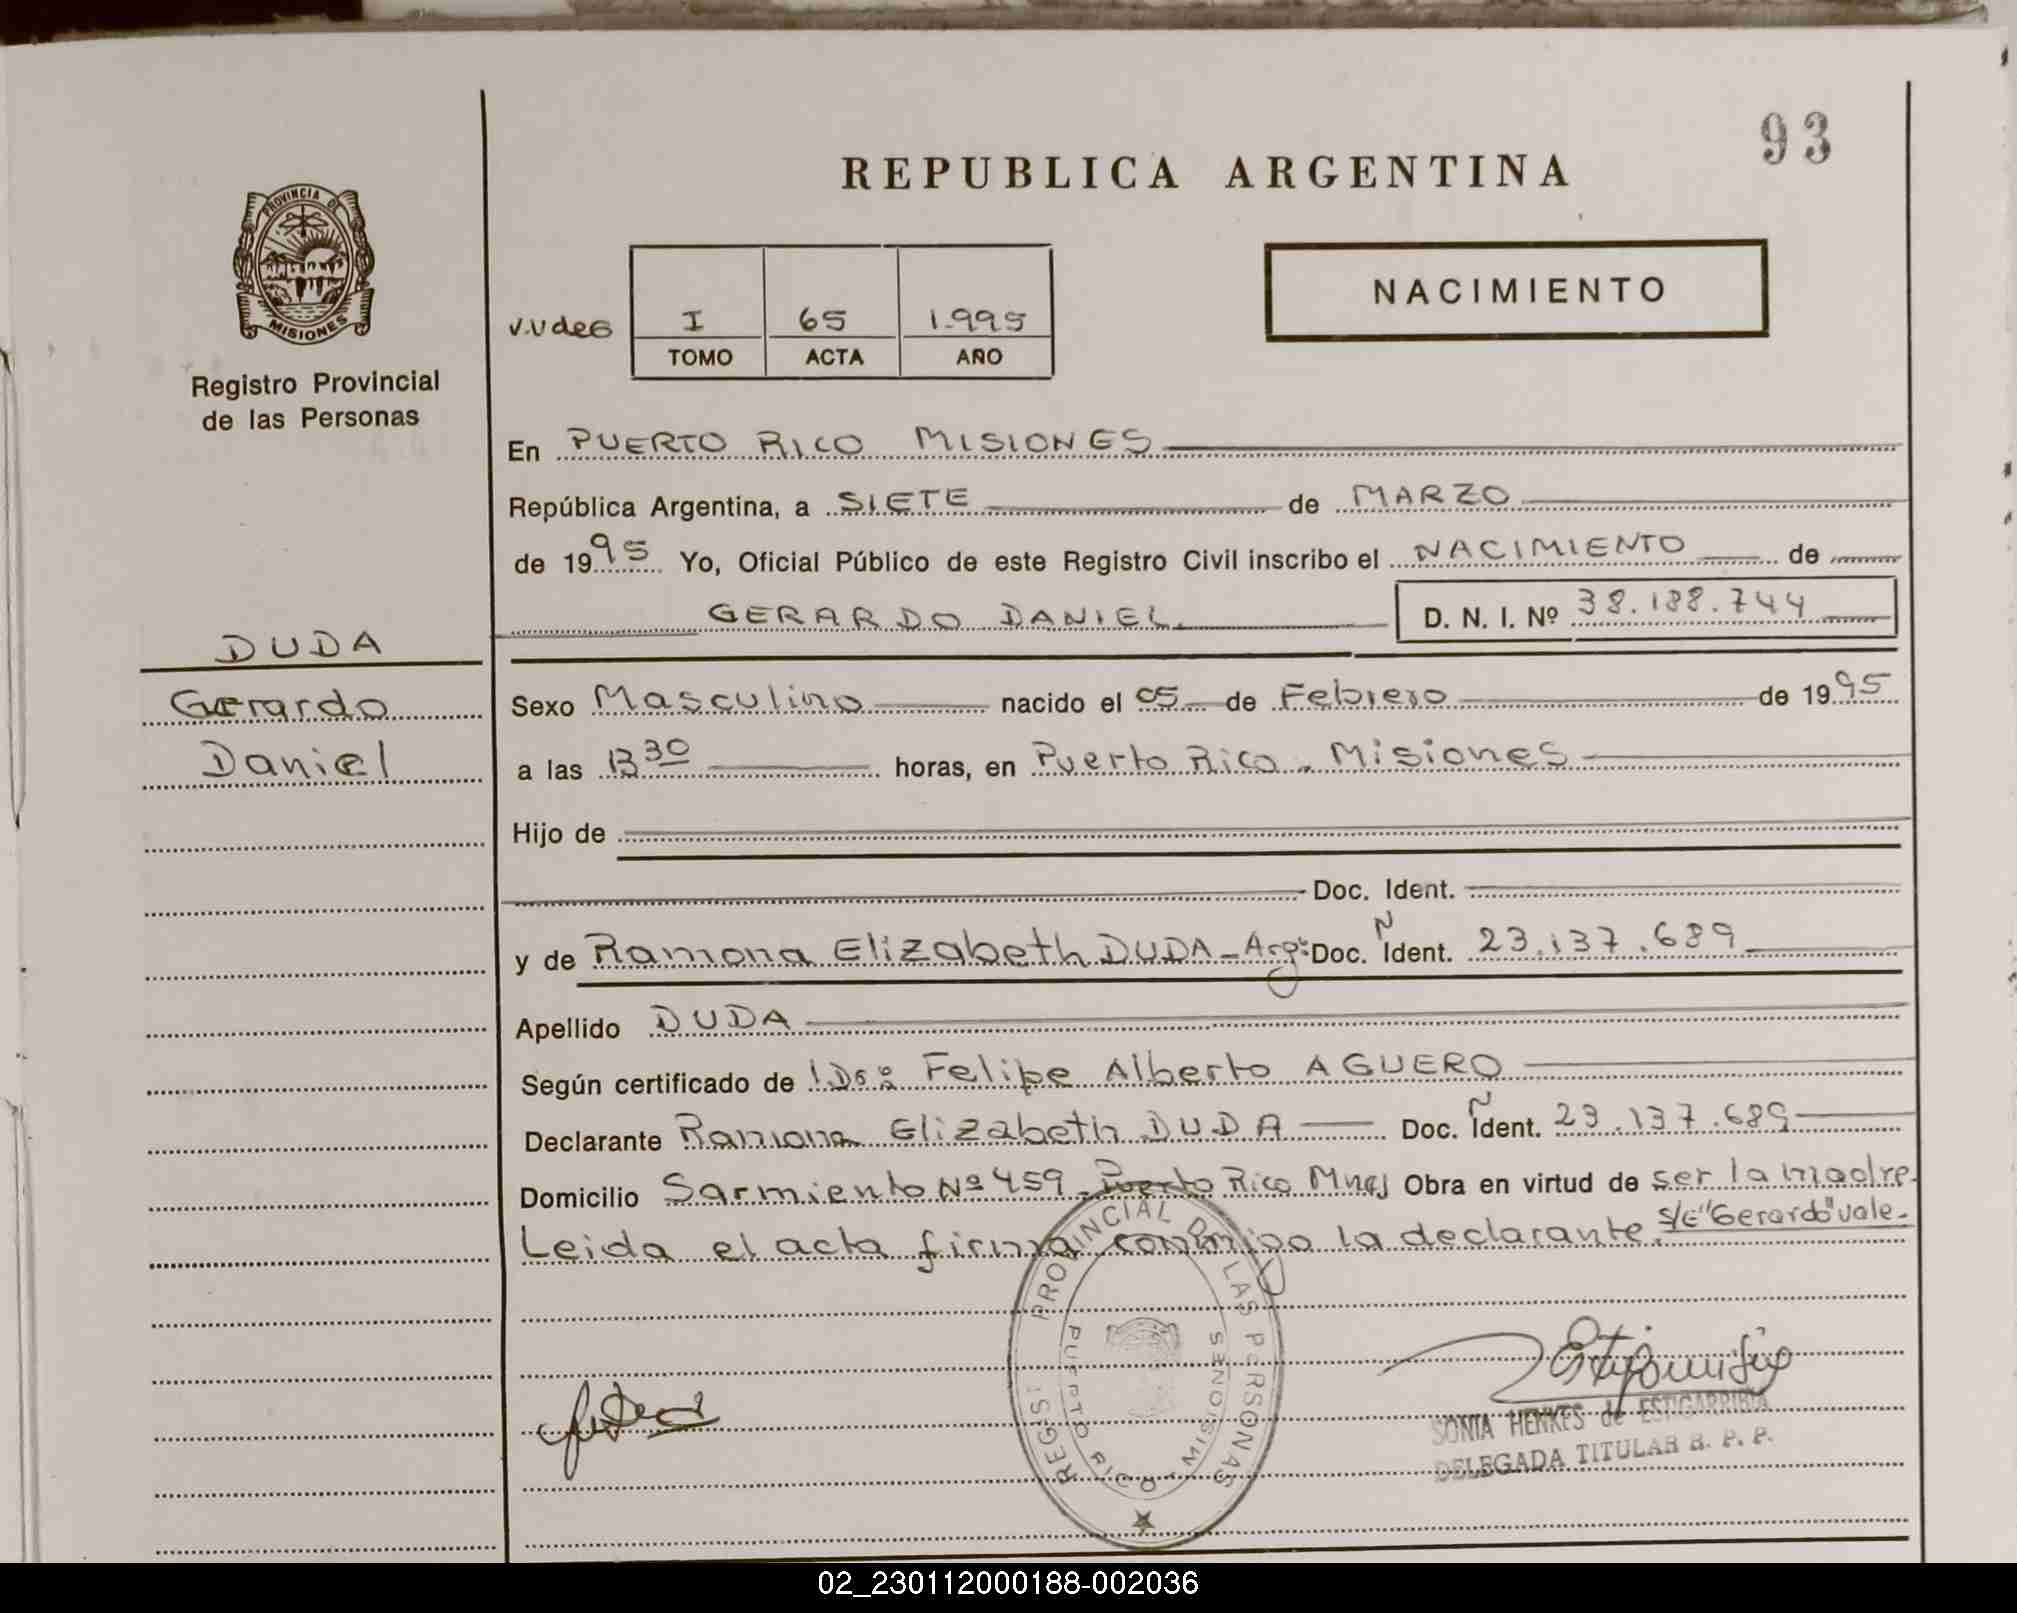 93
REPUBLICA ARGENTINA
PROVINCIA DE
MISIONES
Registro Provincial
de las Personas
NACIMIENTO
I 65 1.995
TOMO ACTA AÑO
En PUERTO RICO MISIONES
República Argentina, a SIETE de MARZO
de 1995 Yo, Oficial Público de este Registro Civil inscribo el NACIMIENTO de
GERARDO DANIEL. D. N. I. Nº 38.188.744
DUDA
Gerardo
Daniel
Sexo Masculino nacido el 05 de Febrero de 1995
a las 13 30 horas, en Puerto Rico - Misiones
Hijo de
Doc. Ident.
y de Ramona Elizabeth DUDA - Arg. Doc. N Ident. 23.137.689
Apellido DUDA
Según certificado de Felipe Alberto AGUERO
Declarante Ramona Elizabeth DUDA Doc. N Ident. 23.137.689
Domicilio Sarmiento Nº 459 - Puerto Rico Mnes Obra en virtud de ser la madre.
Leida el acta firma conmigo la declarante. S/E "Gerardo" vale.
REGIST PROVINCIAL DE LAS PERSONAS
PUERTO RICO - MISIONES
SONIA HENKES de ESTIGARRIBIA
DELEGADA TITULAR R. P. P.
02_230112000188-002036